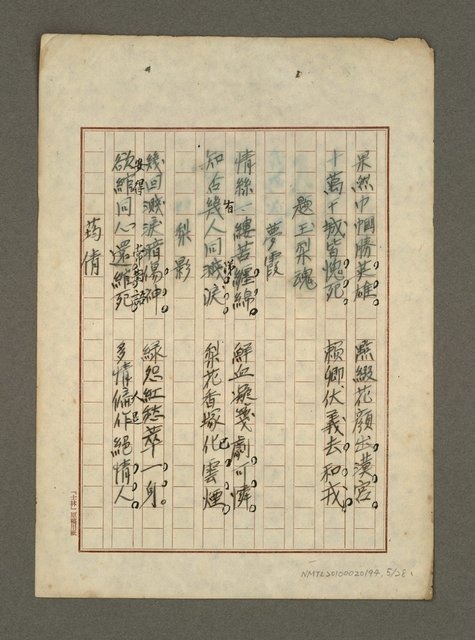 果然巾幗勝英雄　點綴花顏出漢宮。
十萬干城皆愧死。賴卿仗義去和戎。
題玉梨魂
夢霞
情絲一縷苦纏綿。鮮血凝箋劇可憐。
知否幾人同濺淚　梨花香塚已化雲煙。
梨影
幾回濺淚暗易神。綠怨紅愁萃一身。
欲綰同心還綰死　多情偏作絕情人。
筠倩
「士林」原稿用紙
NMTL20100020194, 5/28.